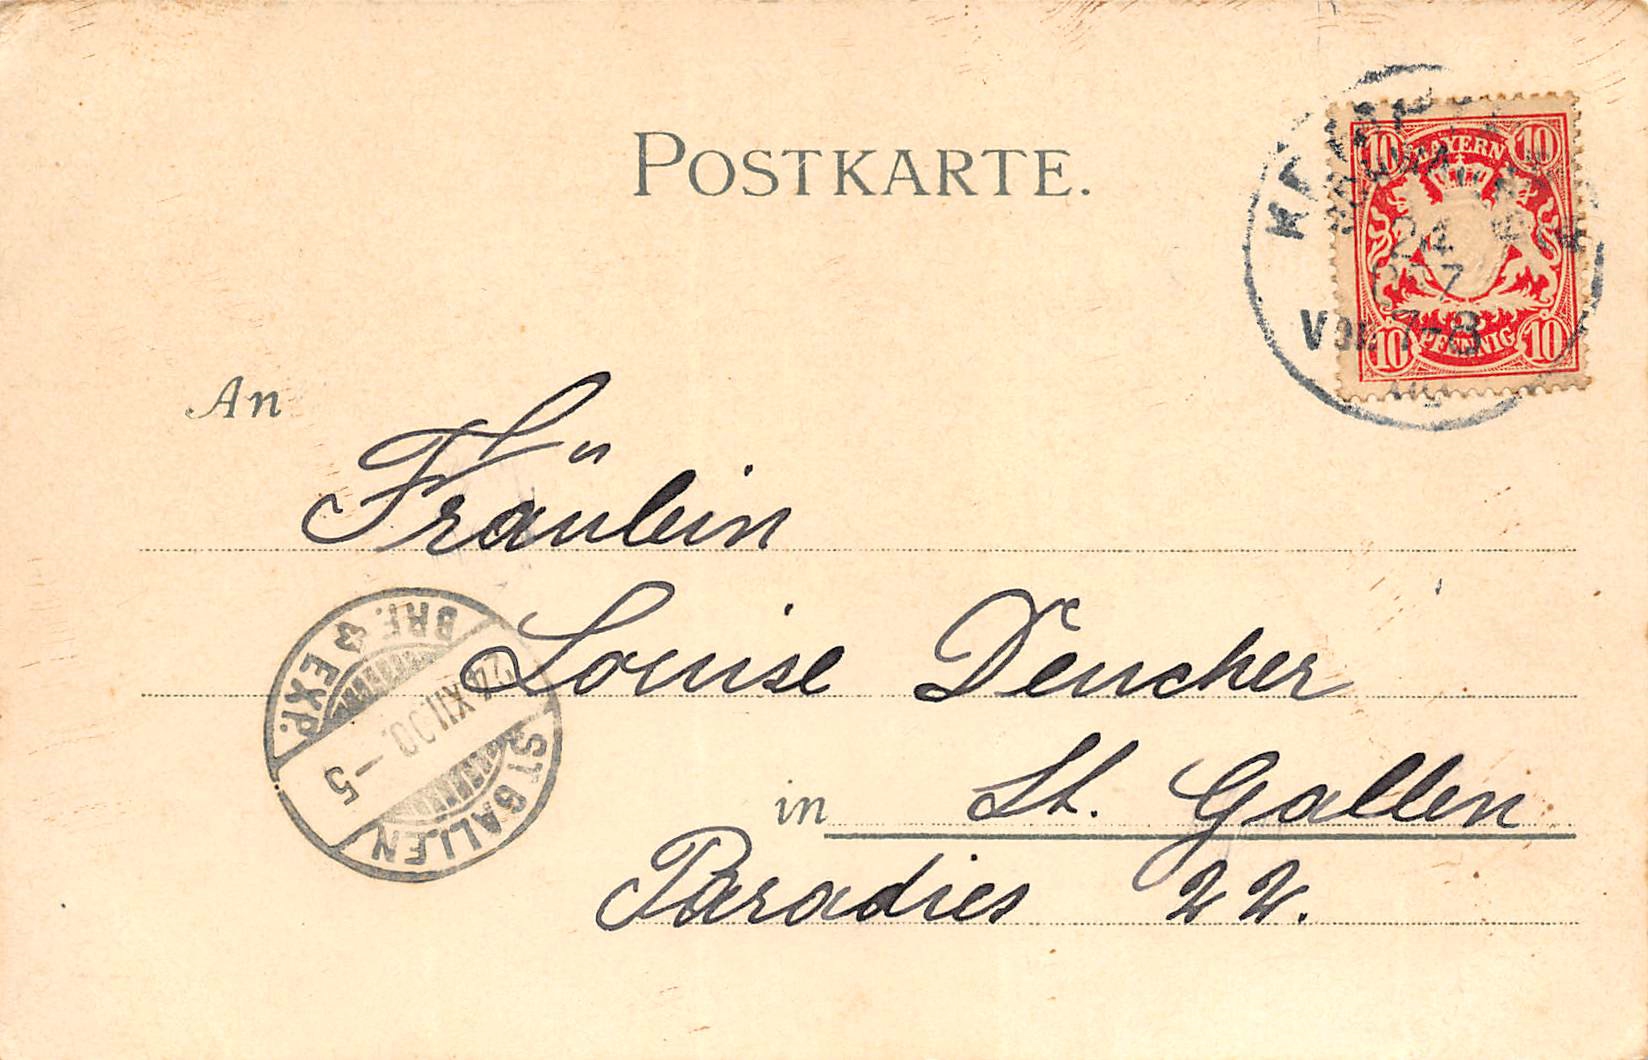 POSTKARTE.
10 BAYERN 10
24
Vor. 7-8
10 PFENNIG 10
An
Fräulein
Louise Dencher
in St. Gallen
Paradies 22.
BRF. EXP.
24.XII.00. – 5
ST GALLEN